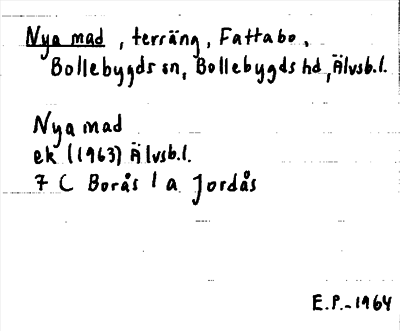 Nya mad, terräng, Fattabo,
Bollebygds sn, Bollebygds hd, Älvsb.l.
Nya mad
ek (1963) Älvsb.l.
7 C Borås 1 a Jordås
E.P.-1964